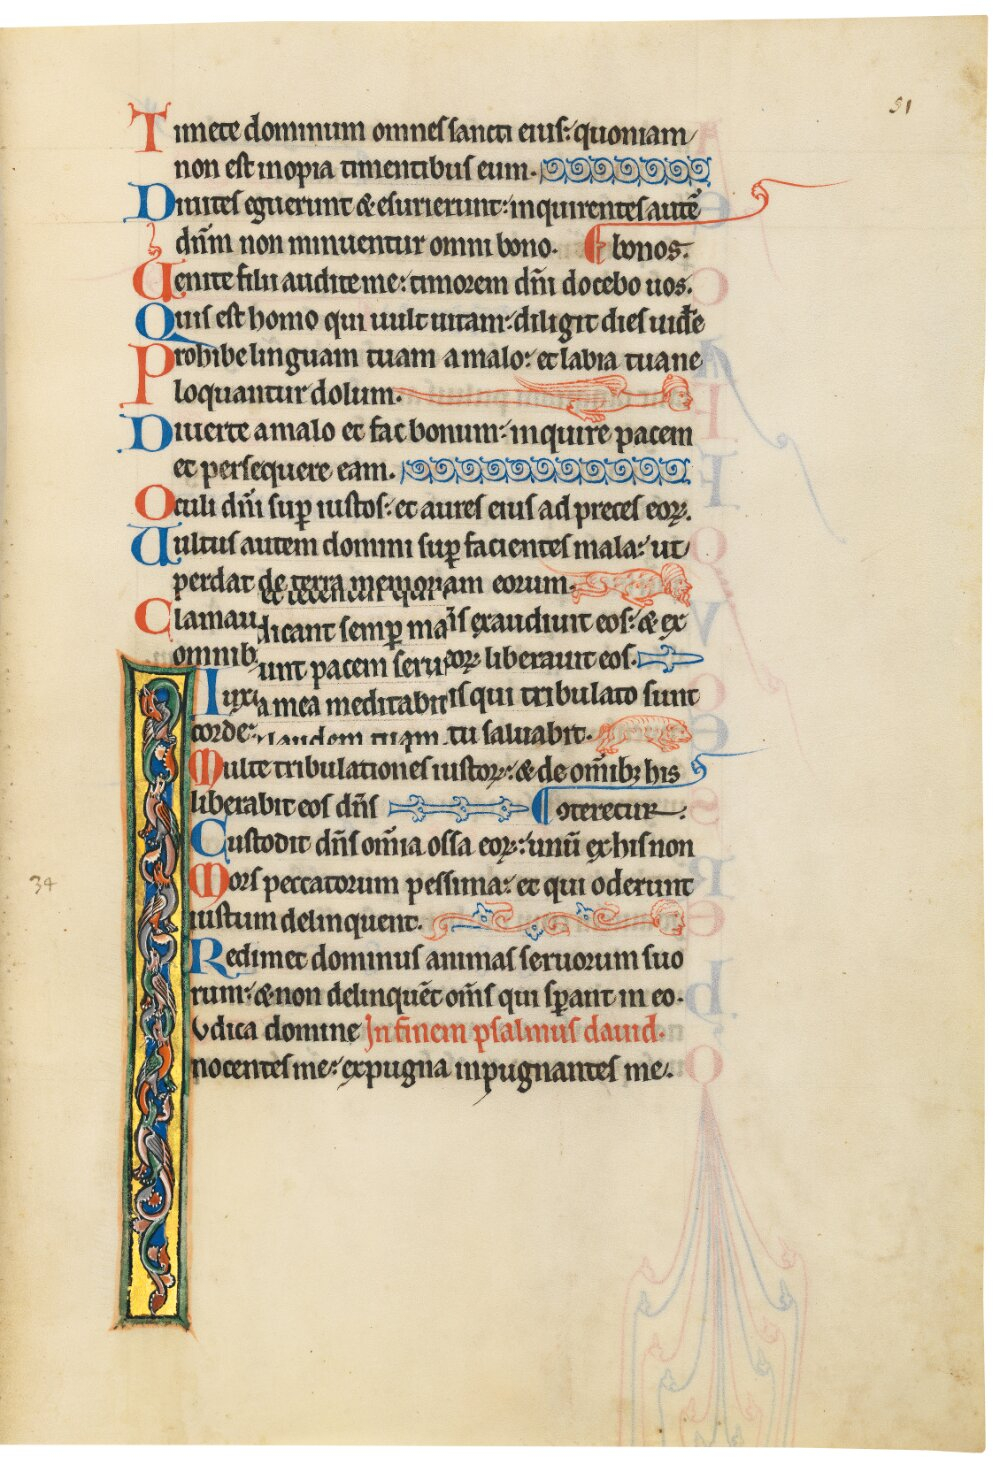 51
Timete dominum omnes sancti eius: quoniam
non est inopia timentibus eum.
Diuites eguerunt & esurierunt: inquirentes autē
dñm non minuentur omni bono. bonos.
Uenite filii audite me: timorem dñi docebo uos.
Quis est homo qui uult uitam: diligit dies uidē
Prohibe linguam tuam a malo: et labia tua ne
loquantur dolum.
Diuerte a malo et fac bonum: inquire pacem
et persequere eam.
Oculi dñi sup iustos: et aures eius ad preces eoꝝ.
Uultus autem domini sup facientes mala: ut
perdat de terra memoriam eorum.
Clamau dicant semp ma is exaudiuit eos: & ex
omnib unt pacem seru eoꝝ liberauit eos.
Iuxt a mea meditabit is qui tribulato sunt
corde: tu saluabit.
Multe tribulationes iustoꝝ: & de omībꝫ his
liberabit eos dñs oteretur.
Custodit dñs omīa ossa eoꝝ: unū ex his non
Mors peccatorum pessima: et qui oderunt
iustum delinquent.
Redimet dominus animas seruorum suo
rum: & non delinquēt om̄s qui spant in eo.
Iudica domine In finem psalmus dauid.
34
nocentes me: expugna inpugnantes me.